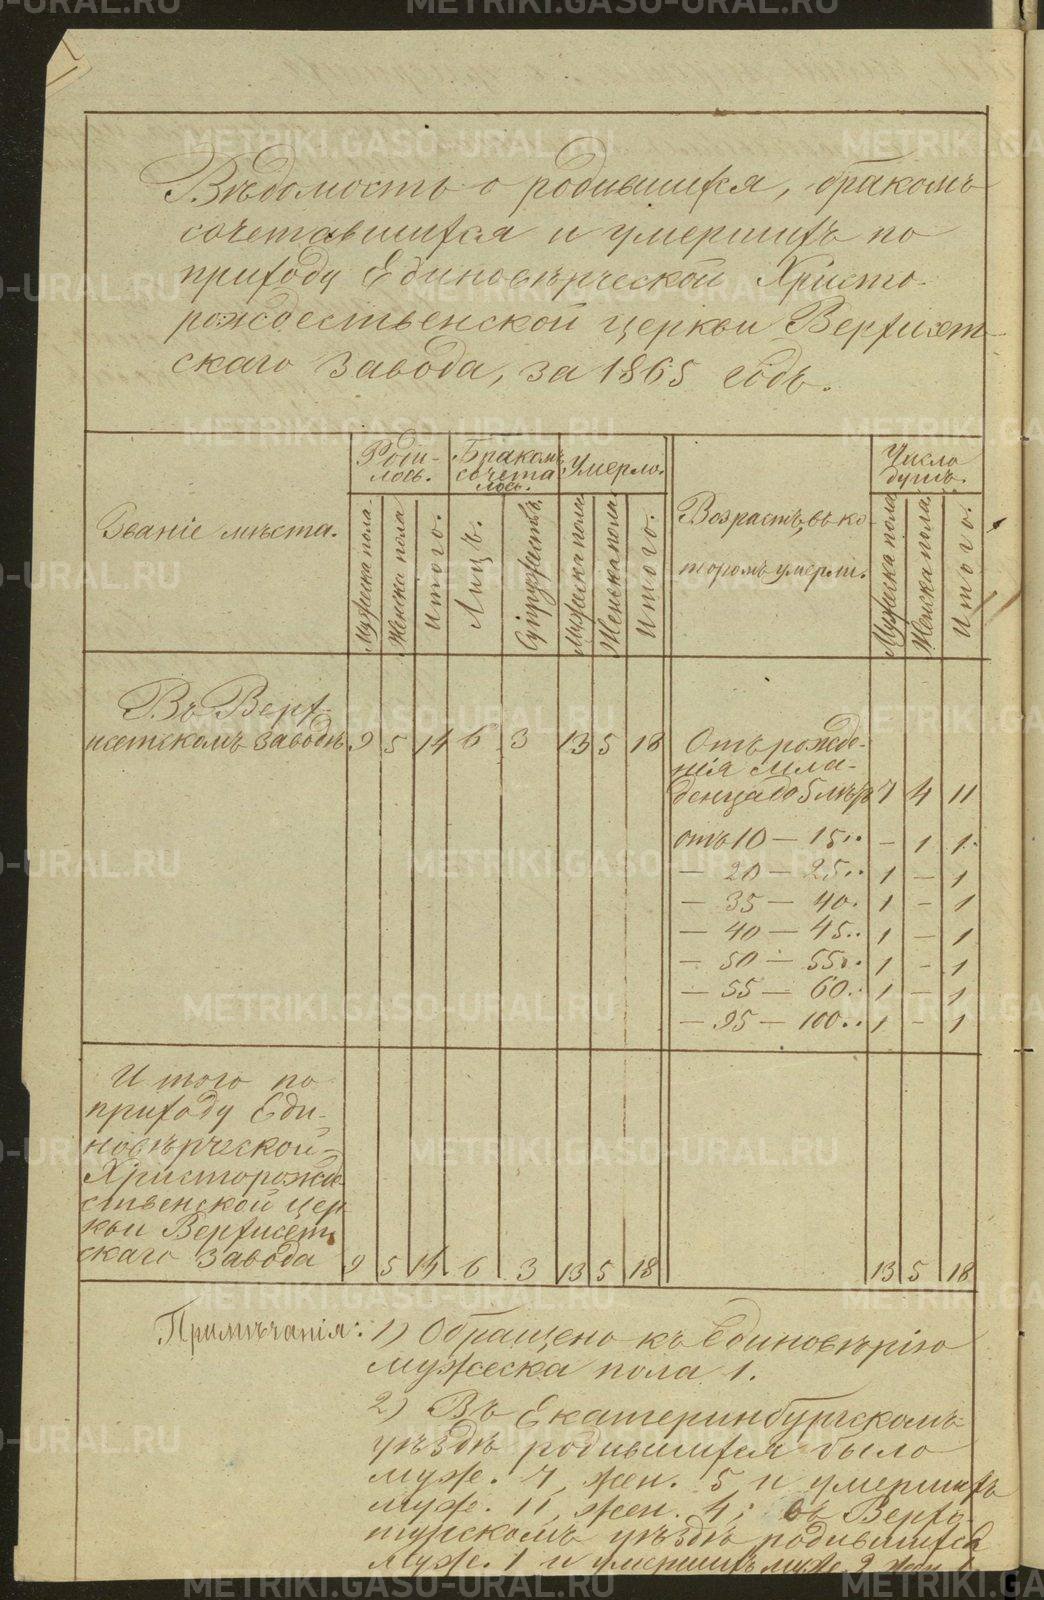 Вѣдомость о родившихся, бракомъ
сочетавшихся и умершихъ по
приходу Единовѣрческой Христо-
рождественской церкви Верхисет-
скаго завода, за 1865 годъ.
Званіе мѣста.
Роди-
лось.
Бракомъ
сочета
лось.
Умерло.
Возрастъ, въ ко-
торомъ умерли.
Число
душъ.
Мужеска пола.
Женска пола
Итого.
Лицъ.
Супружествъ.
Мужеска пола
Женска пола
Итого.
Мужеска пола
Женска пола.
Итого.
Въ Верх-
исетскомъ заводѣ 9 5 14 6 3 13 5 18
Отъ рожде-
нія мла-
денца до 5 лѣтъ 7 4 11
отъ 10 — 15.. - 1 1.
— 20 — 25.. 1 - 1
— 35 — 40. 1 - 1
— 40 — 45.. 1 - 1
— 50 — 55.. 1 - 1
— 55 — 60. 1 - 1
— 95 — 100.. 1 - 1
Итого по
приходу Еди-
новѣрческой
Христорожде-
ственской цер
кви Верхисет
скаго завода 9 5 14. 6 3 13 5 18 13 5 18
Примѣчанія: 1) Обращено къ Единовѣрію
мужеска пола 1.
2) Въ Екатеринбургскомъ
уѣздѣ родившихся было
муж. 7, жен. 5 и умершихъ
муж. 11, жен. 4; въ Верхо-
турскомъ уѣздѣ родившихся
муж. 1 и умершихъ муж. 2 жен. 1
METRIKI.GASO-URAL.RU